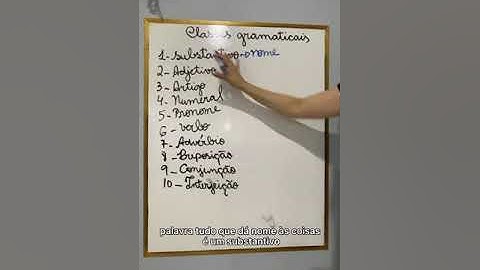 Classes gramaticais
1- substantivo → nome
2- Adjetivo
3- Artigo
4- Numeral
5- Pronome
6- verbo
7- Advérbio
8- Preposição
9- Conjunção
10- Interjeição
palavra tudo que dá nome às coisas
é um substantivo